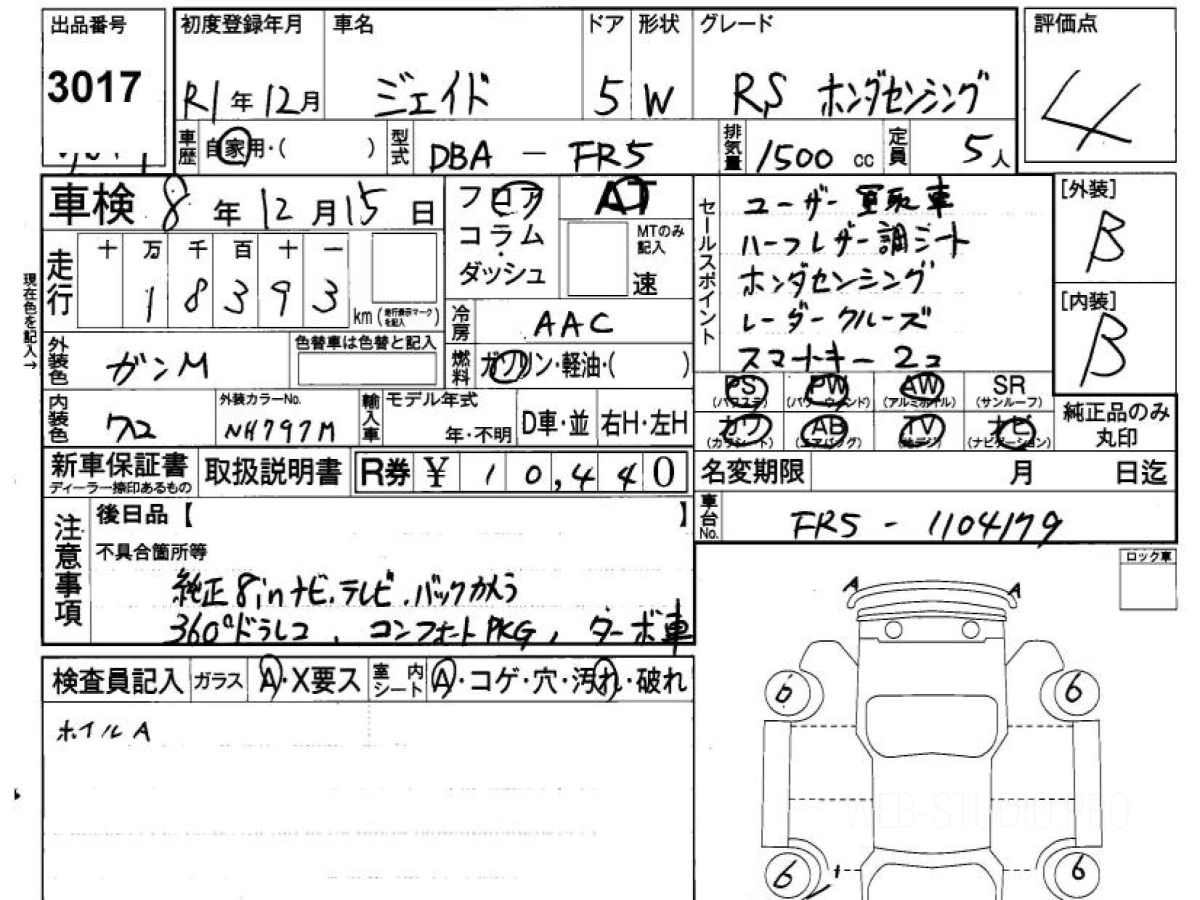 出品番号
3017
初度登録年月 車名 ドア 形状 グレード
R1年12月 ジェイド 5 W RS ホンダセンシング
評価点
4
車歴 自家用・( ) 型式 DBA - FR5 排気量 1500cc 定員 5人
車検 8年12月15日
フロア
コラム
ダッシュ
AT
MTのみ記入
速
セールスポイント
ユーザー買取車
ハーフレザー調シート
ホンダセンシング
レーダークルーズ
スマートキー 2コ
[外装]
B
[内装]
B
現在色を記入→
走行 十 万 千 百 十 一
1 8 3 9 3 km (走行表示マークを記入)
冷房 AAC
外装色 ガンM 色替車は色替と記入
燃料 ガソリン・軽油・( )
内装色 外装カラーNo. NH797M
輸入車 モデル年式 年・不明 D車・並 右H・左H
PS (パワステ) PW (パワーウィンド) AW (アルミホイル) SR (サンルーフ)
カワ (カワシート) AB (エアバッグ) TV (地デジ) ナビ (ナビゲーション)
純正品のみ丸印
新車保証書 ディーラー捺印あるもの 取扱説明書 R券 ¥ 10,440
名変期限 月 日迄
車台No. FR5 - 1104179
注意事項
後日品【 】
不具合箇所等
純正8inナビ.テレビ.バックカメラ
360°ドラレコ , コンフォートPKG , ターボ車
ロック車
検査員記入 ガラス A・X要ス 室内シート A・コゲ・穴・汚れ・破れ
ホイルA
A A
6 6
WEB-STUDIO.PRO
6 6